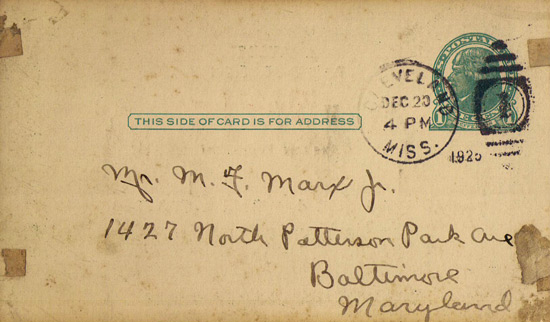 U.S. POSTAL
CLEVELAND
DEC 20
4 PM
MISS.
1925
THIS SIDE OF CARD IS FOR ADDRESS
Mr. M. F. Marx Jr.
1427 North Patterson Park Ave
Baltimore
Maryland